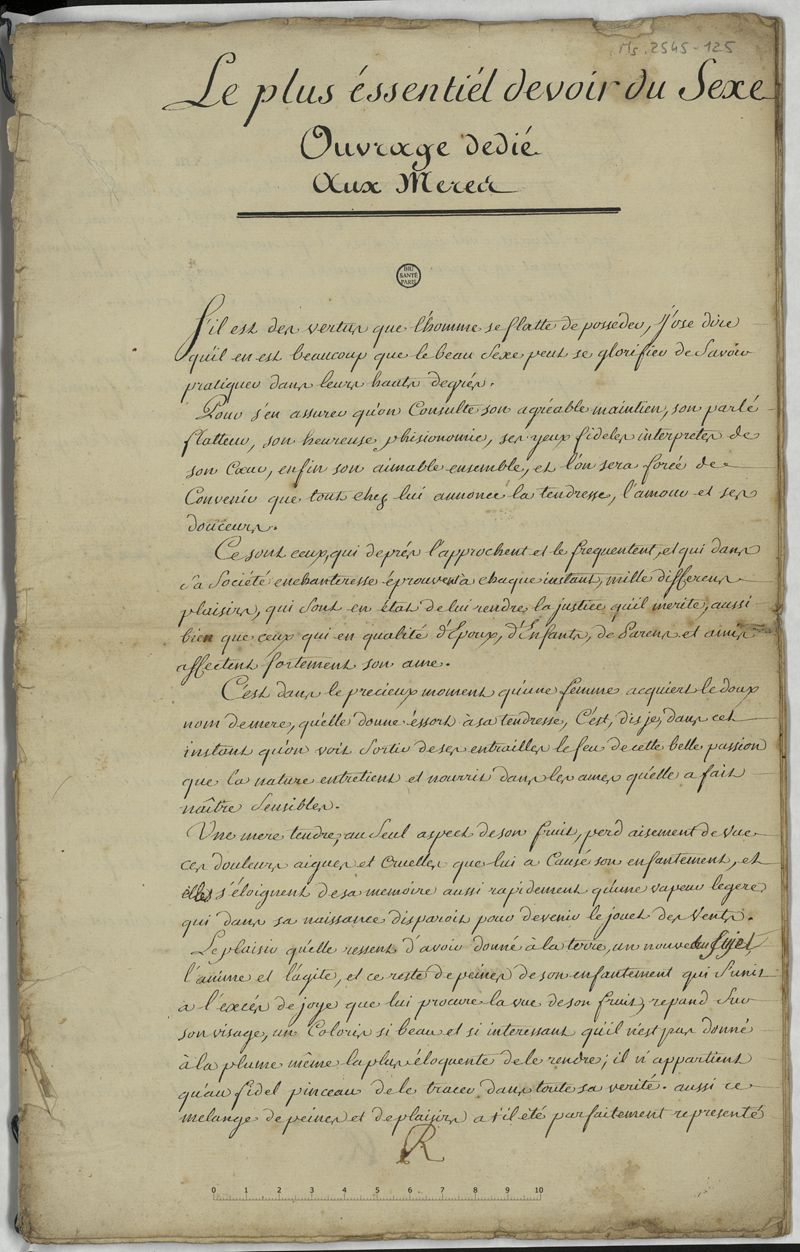 Ms. 2545-125
Le plus éssentiél devoir du Sexe
Ouvrage dedié
Aux Meres
BIU
SANTÉ
PARIS
S'il est des vertus que l'homme se flatte de posseder, J'ose dire
qu'il en est beaucoup que le beau Sexe peut se glorifier de Savoir
pratiquer dans leurs hauts degrés.
Pour s'en assurer qu'on Consulte son agréable maintien, son parlé
flatteur, son heureuse phisionomie, ses yeux fideles interpretes de
son Cœur, enfin son aimable ensemble, et l'on sera forcé de
Convenir que tout chez lui annonce la tendresse, l'amour et ses
douceurs.
Ce sont ceux, qui de prés l'approchent et le frequentent, et qui dans
Sa Société enchanteresse éprouvent à chaque instant, mille differens
plaisirs, qui Sont en état de lui rendre la justice qu'il merite, aussi
bien que ceux qui en qualité d'Epoux, d'Enfants, de Parens et amis
affectent fortement son ame.
C'est dans le precieux moment qu'une femme acquiert le doux
nom de mere, qu'elle donne éssort à sa tendresse, C'est, dis je, dans cet
instant qu'on voit Sortir de ses entrailles le feu de cette belle passion
que la nature entretient et nourrit dans les ames qu'elle a fait
naître Sensibles.
Une mere tendre, au Seul aspect de son fruit, perd aisement de vue
ces douleurs aigues et Cruelles que lui a Causé son enfantement, et
elles s'éloignent de sa memoire aussi rapidement qu'une vapeur legere
qui dans sa naissance disparoit pour devenir le jouet des Vents.
Le plaisir qu'elle ressent d'avoir donné à la terre, un nouveau Sujet,
l'anime et l'agite, et ce reste de peines de son enfantement qui S'unit
à l'excés de joye que lui procure la vue de son fruit, repand Sur
son visage, un Coloris si beau et si interessant qu'il n'est pas donné
à la plume même la plus éloquente de le rendre; il n'appartient
qu'au fidel pinceau de le tracer dans toute sa verité. aussi ce
melange de peines et de plaisirs a t'il été parfaitement representé
R
0 1 2 3 4 5 6 7 8 9 10